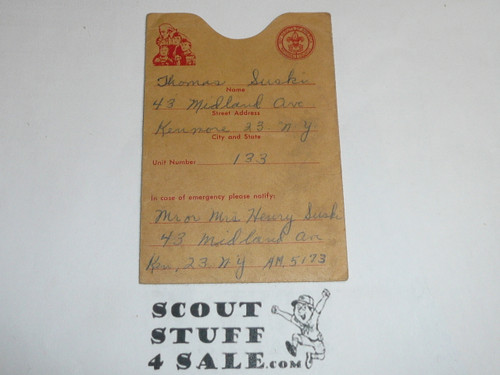 Thomas Suski
Name
43 Midland Ave
Street Address
Kenmore 23 N Y
City and State
Unit Number 133
In case of emergency please notify:
Mr or Mrs Henry Suski
43 Midland Av
Ken, 23 N Y AM 5173
SCOUT
STUFF
4 SALE.COM